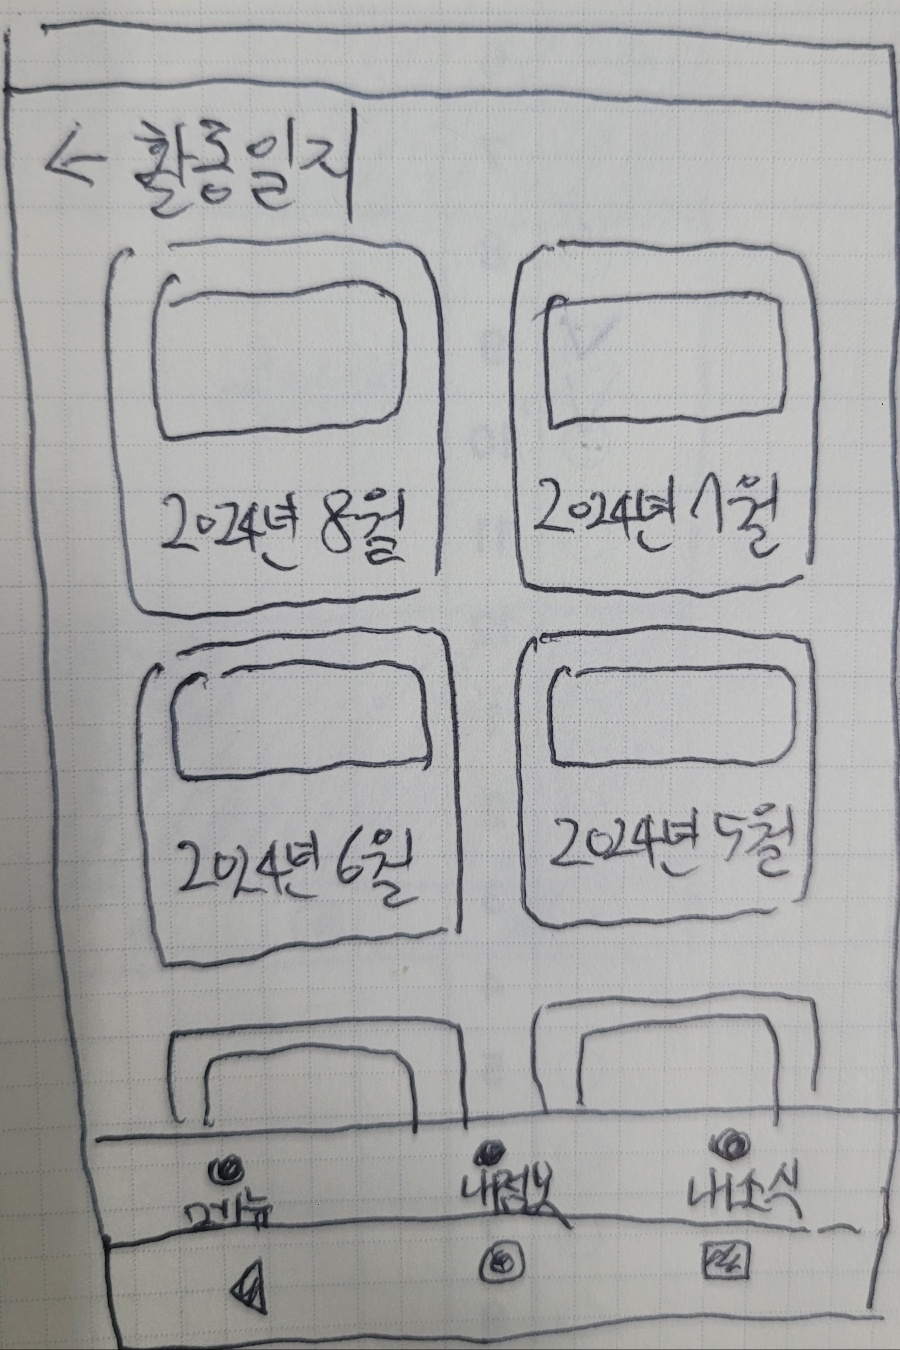 ← 활동일지
2024년 8월
2024년 7월
2024년 6월
2024년 5월
메뉴
내정보
내소식